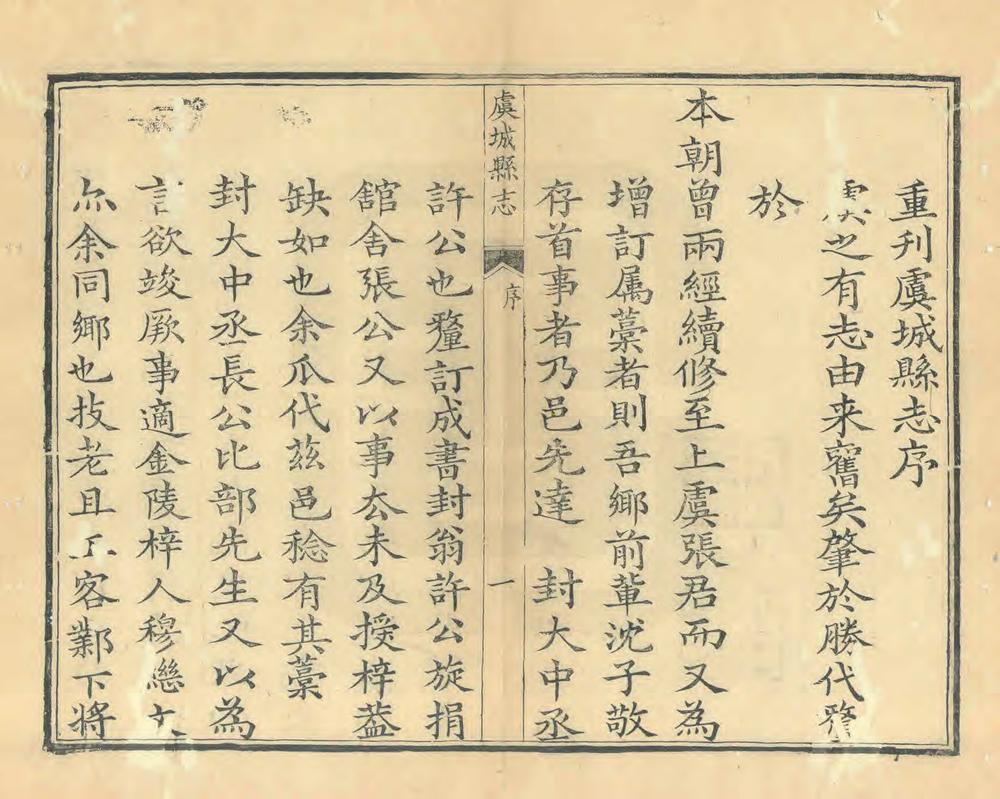 重刊虞城縣志序
之有志由来舊矣肇於勝代
於
本朝曾兩經續修至上虞張君而又為
增訂属藁者則吾鄉前軰沈子敬
存首事者乃邑先達 封大中丞
虞城縣志 序 一
許公也釐訂成書封翁許公旋捐
舘舍張公又以事去未及授梓葢
缺如也余瓜代茲邑稔有其藁
封大中丞長公比部先生又以為
言欲竣厥事適金陵梓人穆
余同鄉也技老且 客鄴下将